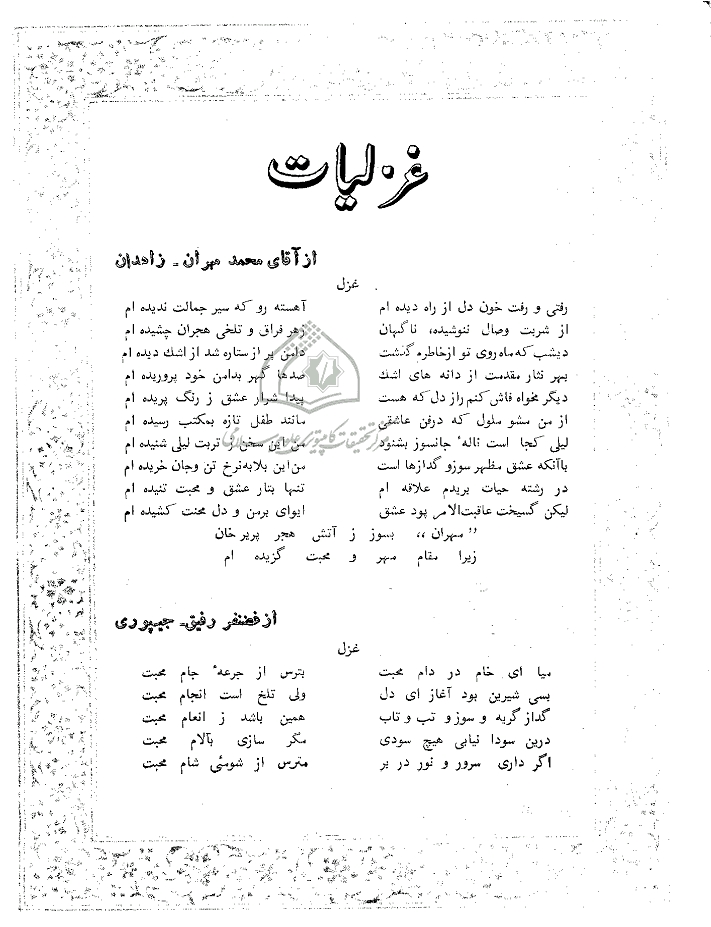 غزلیات
از آقای محمد مهران - زاهدان
غزل
رفتی و رفت خون دل از راه دیده ام    آهسته رو که سیر جمالت ندیده ام
از شربت وصال ننوشیده، ناگهان    زهر فراق و تلخی هجران چشیده ام
دیشب که ماه روی تو از خاطرم گذشت    دامن پر از ستاره شد از اشک دیده ام
بهر نثار مقدمت از دانه های اشک    صدها گهر بدامن خود پروریده ام
دیگر مخواه فاش کنم راز دل که هست    پیدا شرار عشق ز رنگ پریده ام
از من مشو ملول که درفن عاشقی    مانند طفل تازه بمکتب رسیده ام
لیلی کجا است نالهٔ جانسوز بشنود    من این سخن ز تربت لیلی شنیده ام
باآنکه عشق مظهر سوزو گدازها است    من این بلا به نرخ تن وجان خریده ام
در رشته حیات بریدم علاقه ام    تنها بتار عشق و محبت تنیده ام
لیکن گسیخت عاقبت‌الامر پود عشق    ایوای برمن و دل محنت کشیده ام
«مهران»، بسوز ز آتش هجر پریرخان
زیرا مقام مهر و محبت گزیده ام
از فضنفر رفیق - جیپوری
غزل
میا ای خام در دام محبت    بترس از جرعهٔ جام محبت
بسی شیرین بود آغاز ای دل    ولی تلخ است انجام محبت
گداز گریه و سوز و تب و تاب    همین باشد ز انعام محبت
درین سودا نیابی هیچ سودی    مگر سازی بآلام محبت
اگر داری سرور و نور در بر    مترس از شومئی شام محبت